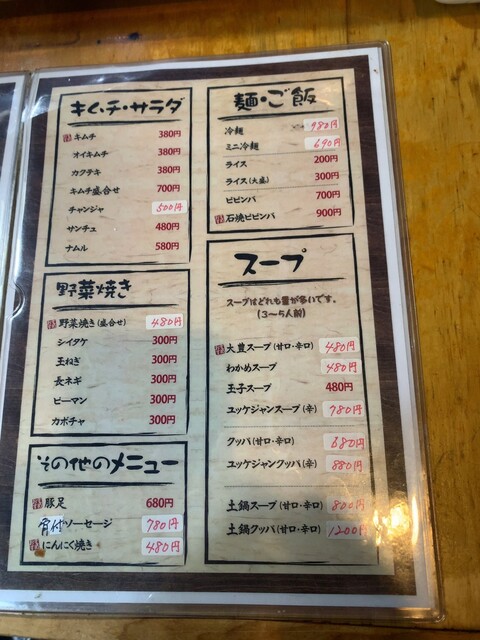 キムチ・サラダ
キムチ 380円
オイキムチ 380円
カクテキ 380円
キムチ盛合せ 700円
チャンジャ 500円
サンチュ 480円
ナムル 580円
野菜焼き
野菜焼き(盛合せ) 480円
シイタケ 300円
玉ねぎ 300円
長ネギ 300円
ピーマン 300円
カボチャ 300円
その他のメニュー
豚足 680円
骨付ソーセージ 780円
にんにく焼き 480円
麺・ご飯
冷麺 980円
ミニ冷麺 690円
ライス 200円
ライス(大盛) 300円
ビビンバ 700円
石焼ビビンバ 900円
スープ
スープはどれも量が多いです。
(3〜5人前)
大豊スープ(甘口・辛口) 480円
わかめスープ 480円
玉子スープ 480円
ユッケジャンスープ(辛) 780円
クッパ(甘口・辛口) 680円
ユッケジャンクッパ(辛) 880円
土鍋スープ(甘口・辛口) 800円
土鍋クッパ(甘口・辛口) 1200円